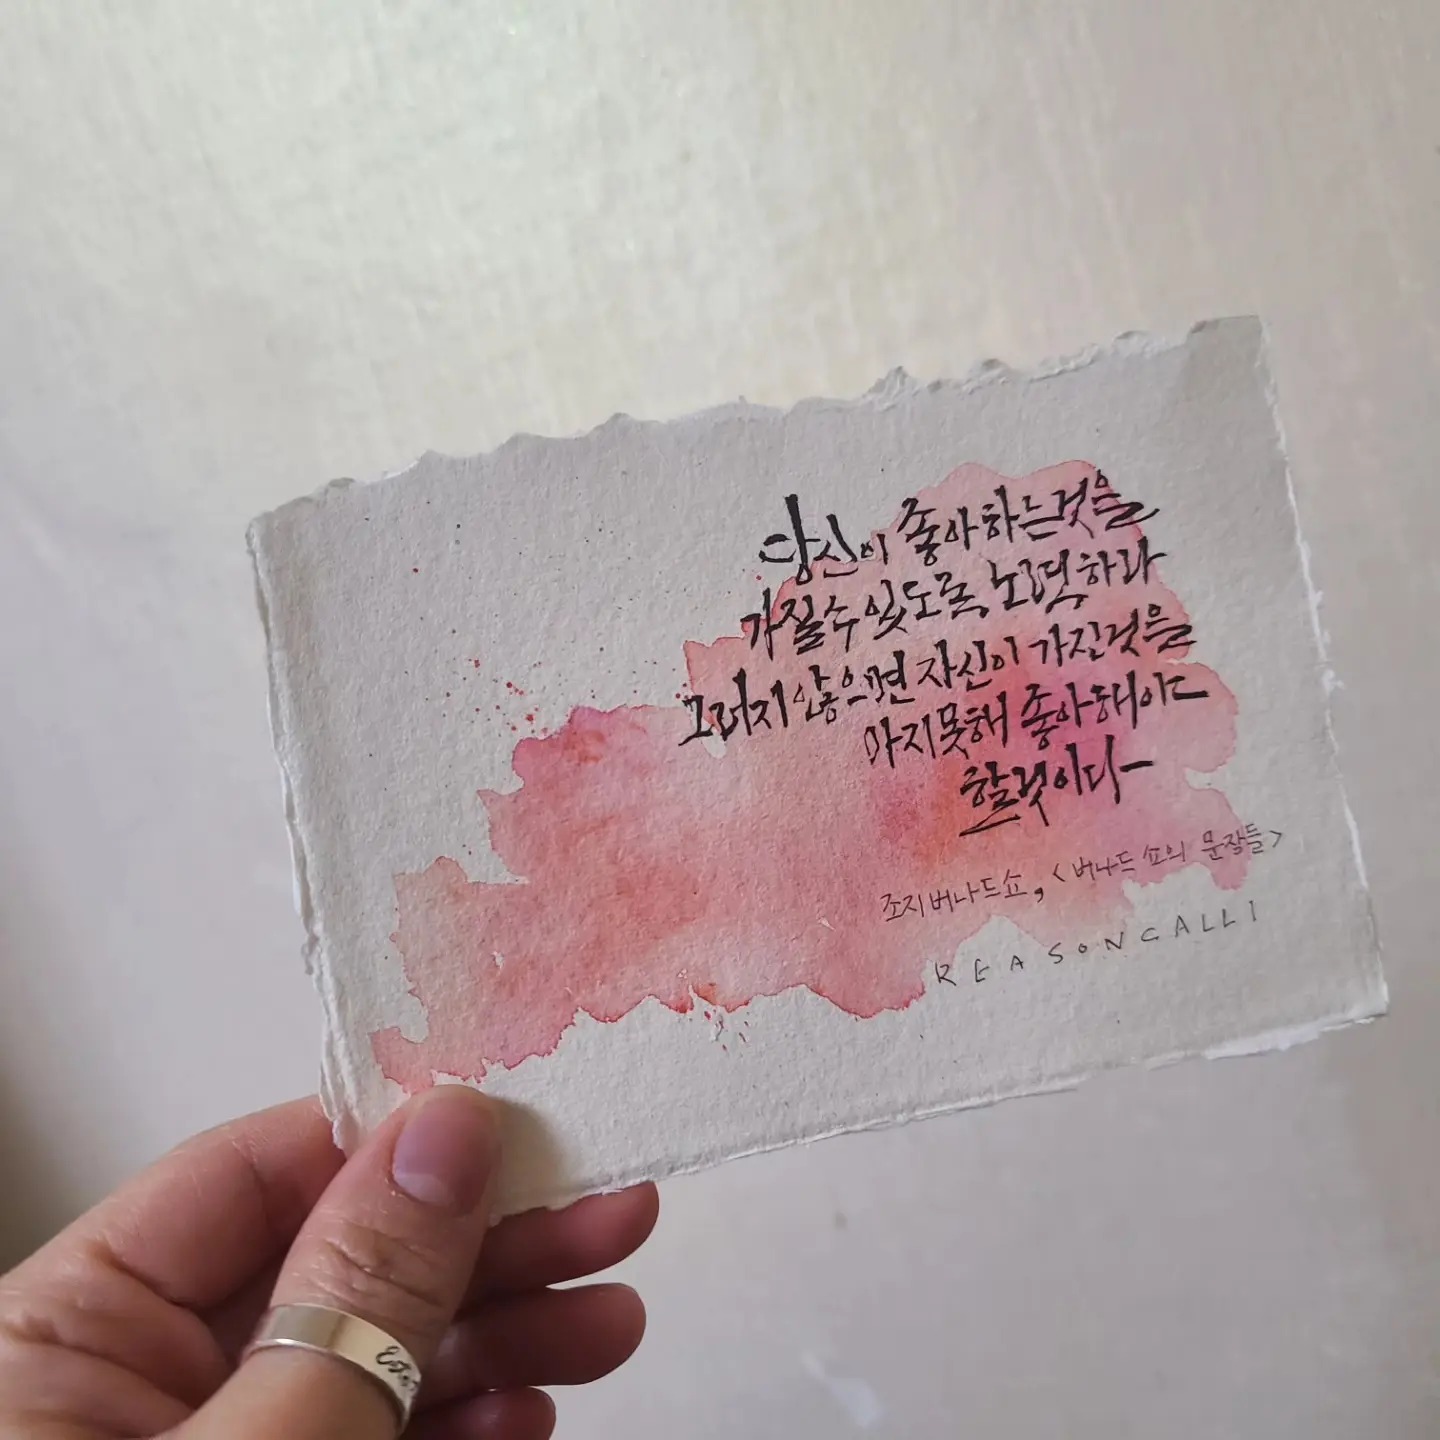 당신이 좋아하는것을
가질수있도록, 노력하라
그러지않으면 자신이 가진것을
마지못해 좋아해야
할것이다
조지버나드쇼, <버나드 쇼의 문장들>
REASONCALLI